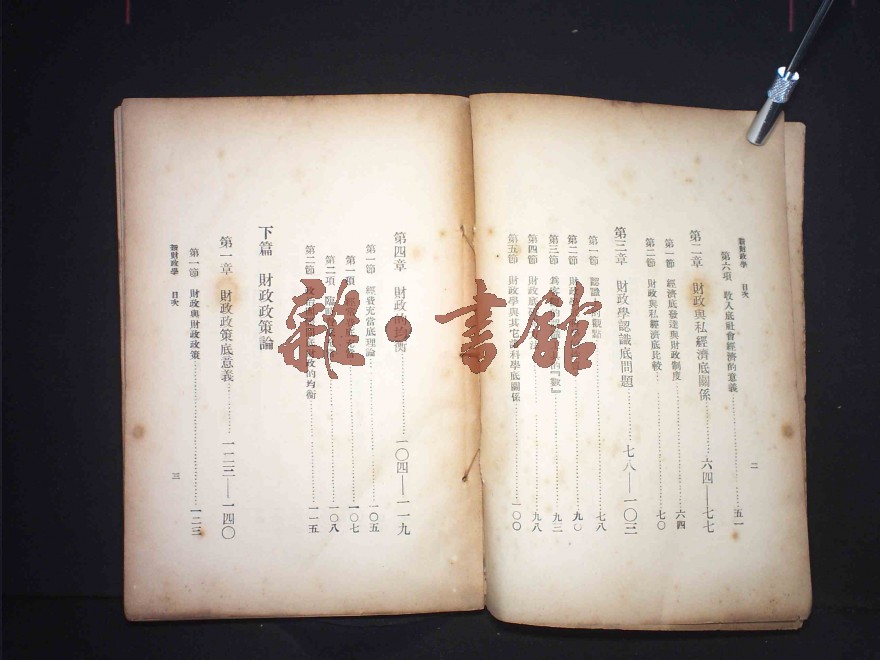 新財政學 目次
二
第六項 收入底社會經濟的意義 五一
第二章 財政與私經濟底關係 六四—七七
第一節 經濟底發達與財政制度 六四
第二節 財政與私經濟底比較 七〇
第三章 財政學認識底問題 七八—一〇三
第一節 認識 觀點 七八
第二節 財政學 九〇
第三節 的『數』 九三
第四節 財政底 九八
第五節 財政學與其它 科學底關係 一〇〇
第四章 財政的均衡 一〇四—一一九
第一節 經費充當底理論 一〇五
第一項 一〇七
第二項 一〇八
第二節 財政的均衡 一一五
下篇 財政政策論
第一章 財政政策底意義 一二三—一四〇
第一節 財政與財政政策 一二三
新財政學 目次
三
雜·書館